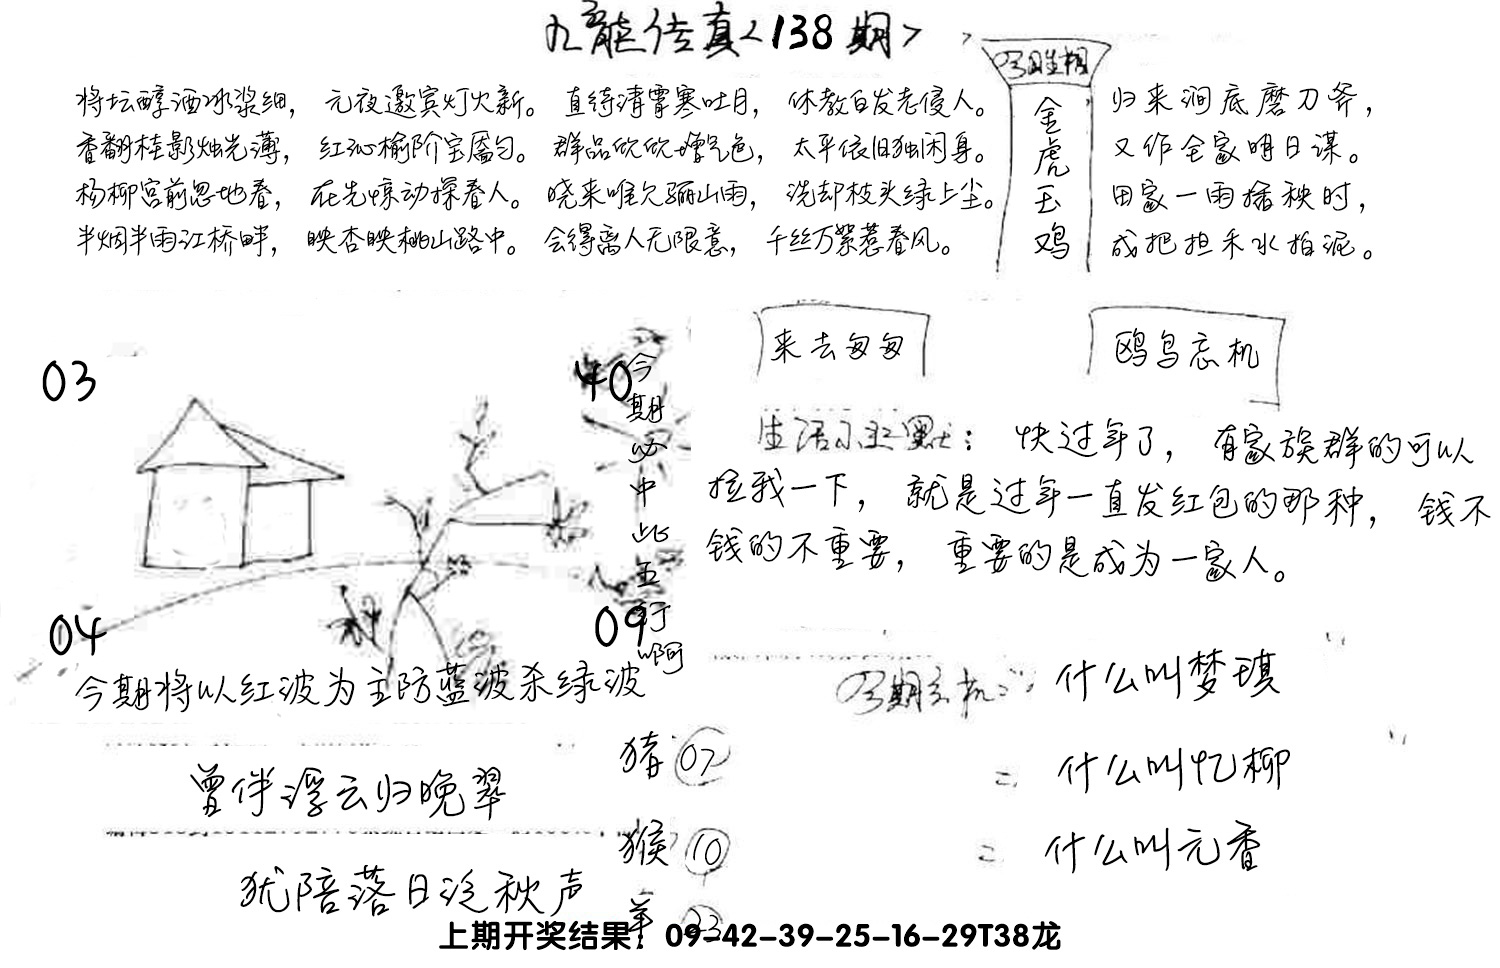 九龙传真<138期>
将坛醇酒冰浆细，元夜邀宾灯火新。直待清霄寒吐月，休教白发老侵人。
香翻桂影烛光薄，红沁榆阶宝靥匀。群品欣欣增气色，太平依旧独闲身。
杨柳宫前忽地春，在先惊动探春人。晓来唯欠骊山雨，洗却枝头绿上尘。
半烟半雨江桥畔，映杏映桃山路中。会得离人无限意，千丝万絮惹春风。
今日生相
金虎玉鸡
归来涧底磨刀斧，
又作全家明日谋。
田家一雨插秧时，
成把担禾水拍泥。
来去匆匆
鸥鸟忘机
03
40
04
09
今期必中此五行啊
今期将以红波为主防蓝波杀绿波
生活小幽默：快过年了，有家族群的可以
拉我一下，就是过年一直发红包的那种，钱不
钱的不重要，重要的是成为一家人。
今期玄机：什么叫梦琪
什么叫忆柳
什么叫元香
曾伴浮云归晚翠
犹陪落日泛秋声
猪 07
猴 10
羊 23
上期开奖结果：09-42-39-25-16-29T38龙